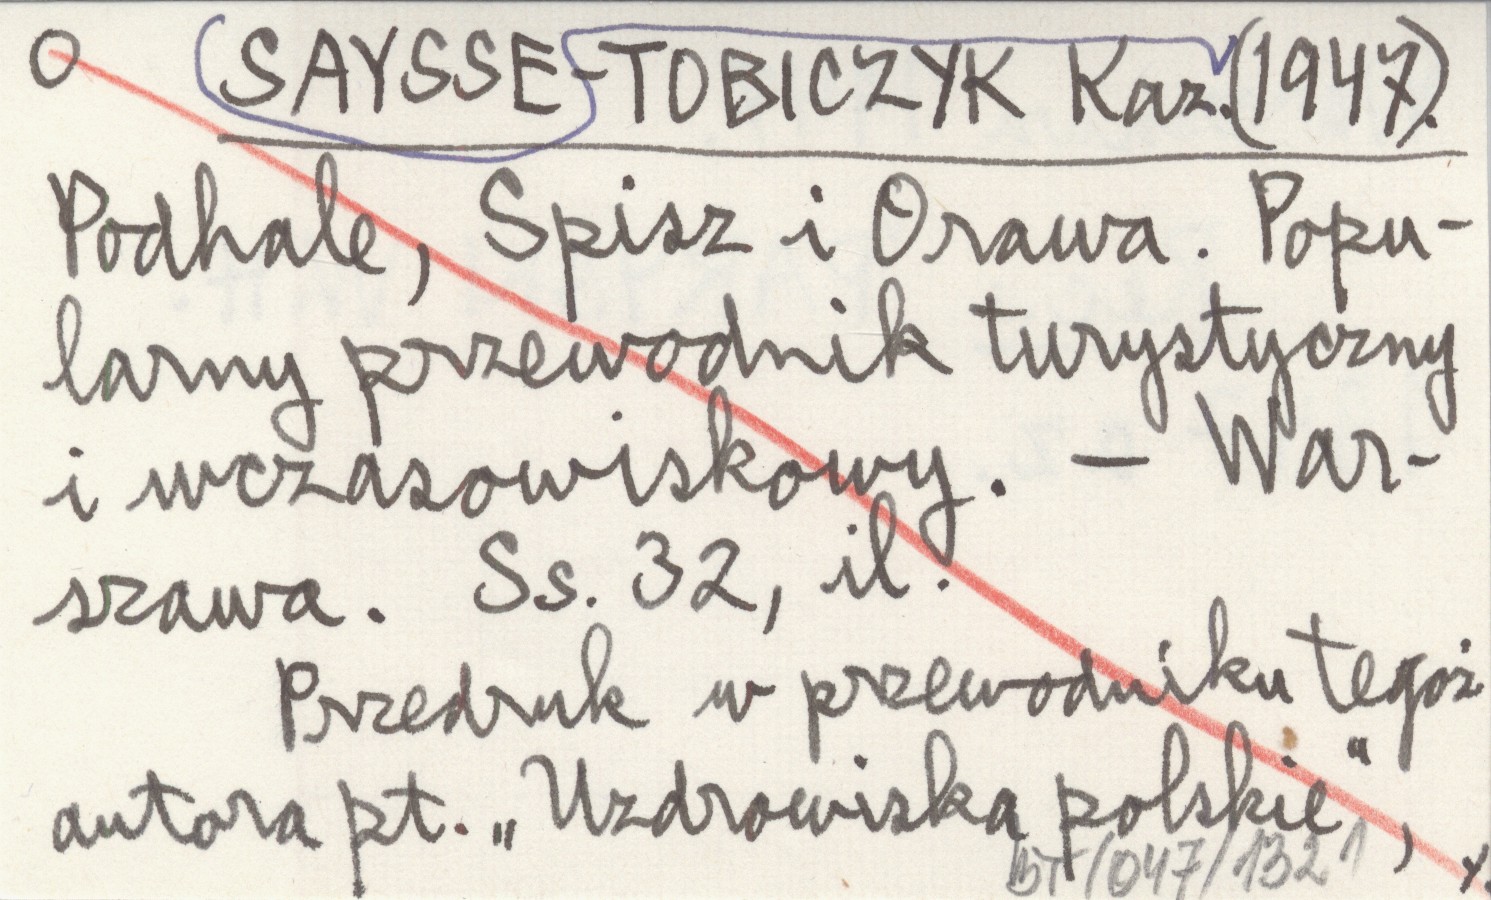 O SAYSSE-TOBICZYK Kaz. (1947).
Podhale, Spisz i Orawa. Popu-
larny przewodnik turystyczny
i wczasowiskowy. — War-
szawa. Ss. 32, il.
Przedruk w przewodniku tegoż
autora pt. „Uzdrowiska polskie",
BT/047/132 1